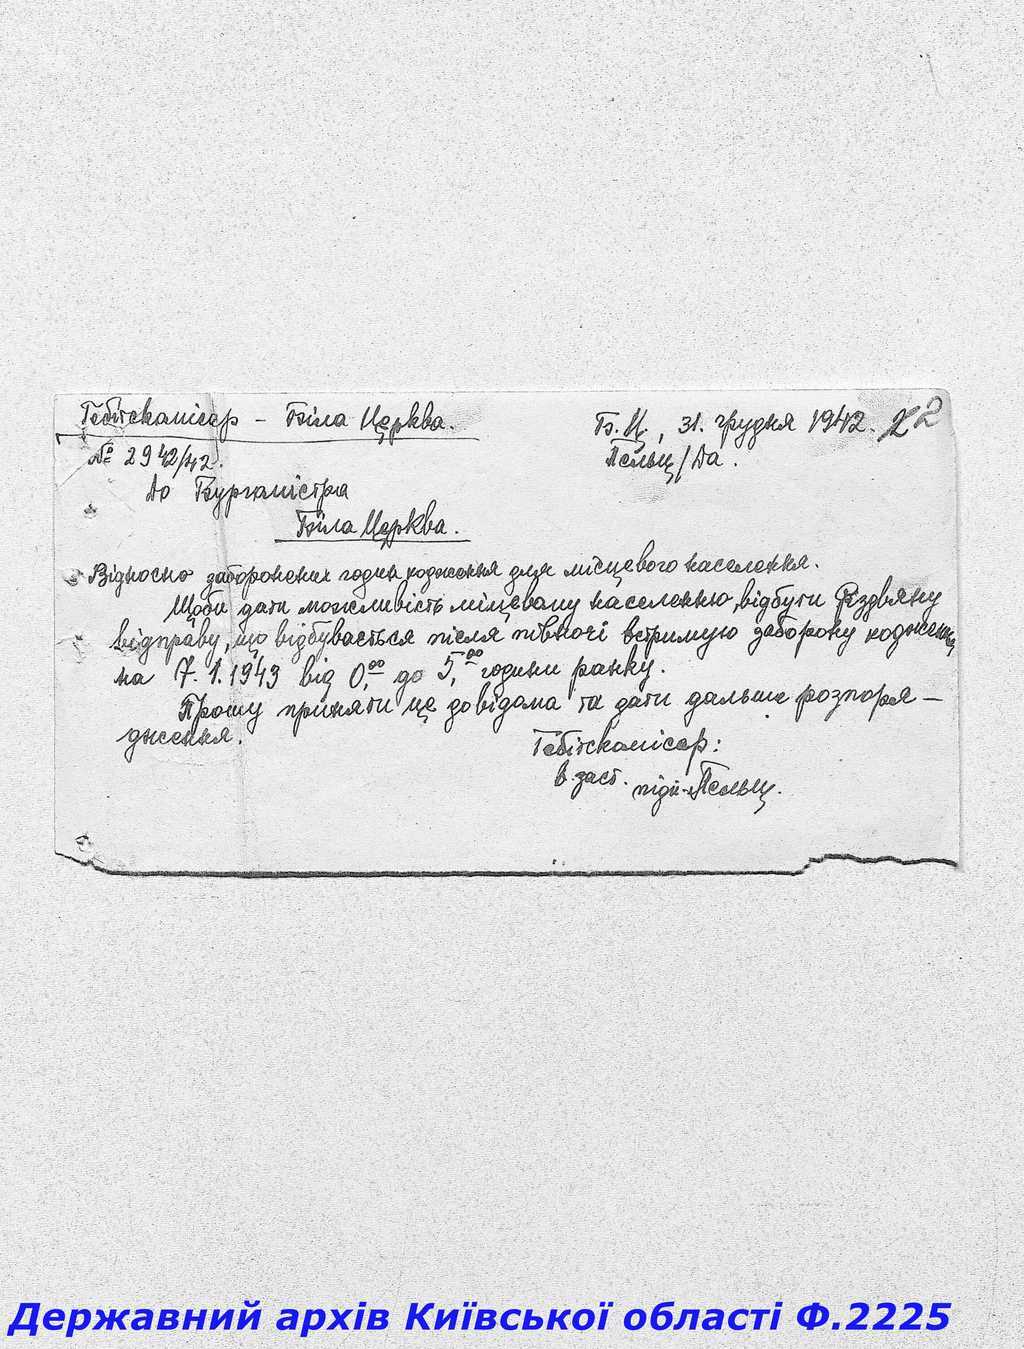 Гебітскомісар – Біла Церква.
Б. Ц., 31. грудня 1942.
№ 2942/42.
Пельц/Да.
До Бургомістра
Біла Церква.
Відносно заборонених годин ходження для місцевого населення.
Щоби дати можливість місцевому населенню, відбути Різдвяну
відправу, що відбувається після півночі встримую заборону ходження
на 7.1.1943 від 0,00 до 5,00 години ранку.
Прошу приняти це до відома та дати дальше розпоря–
дження.
Гебітскомісар:
в. заст. підп. Пельц.
Державний архів Київської області Ф.2225